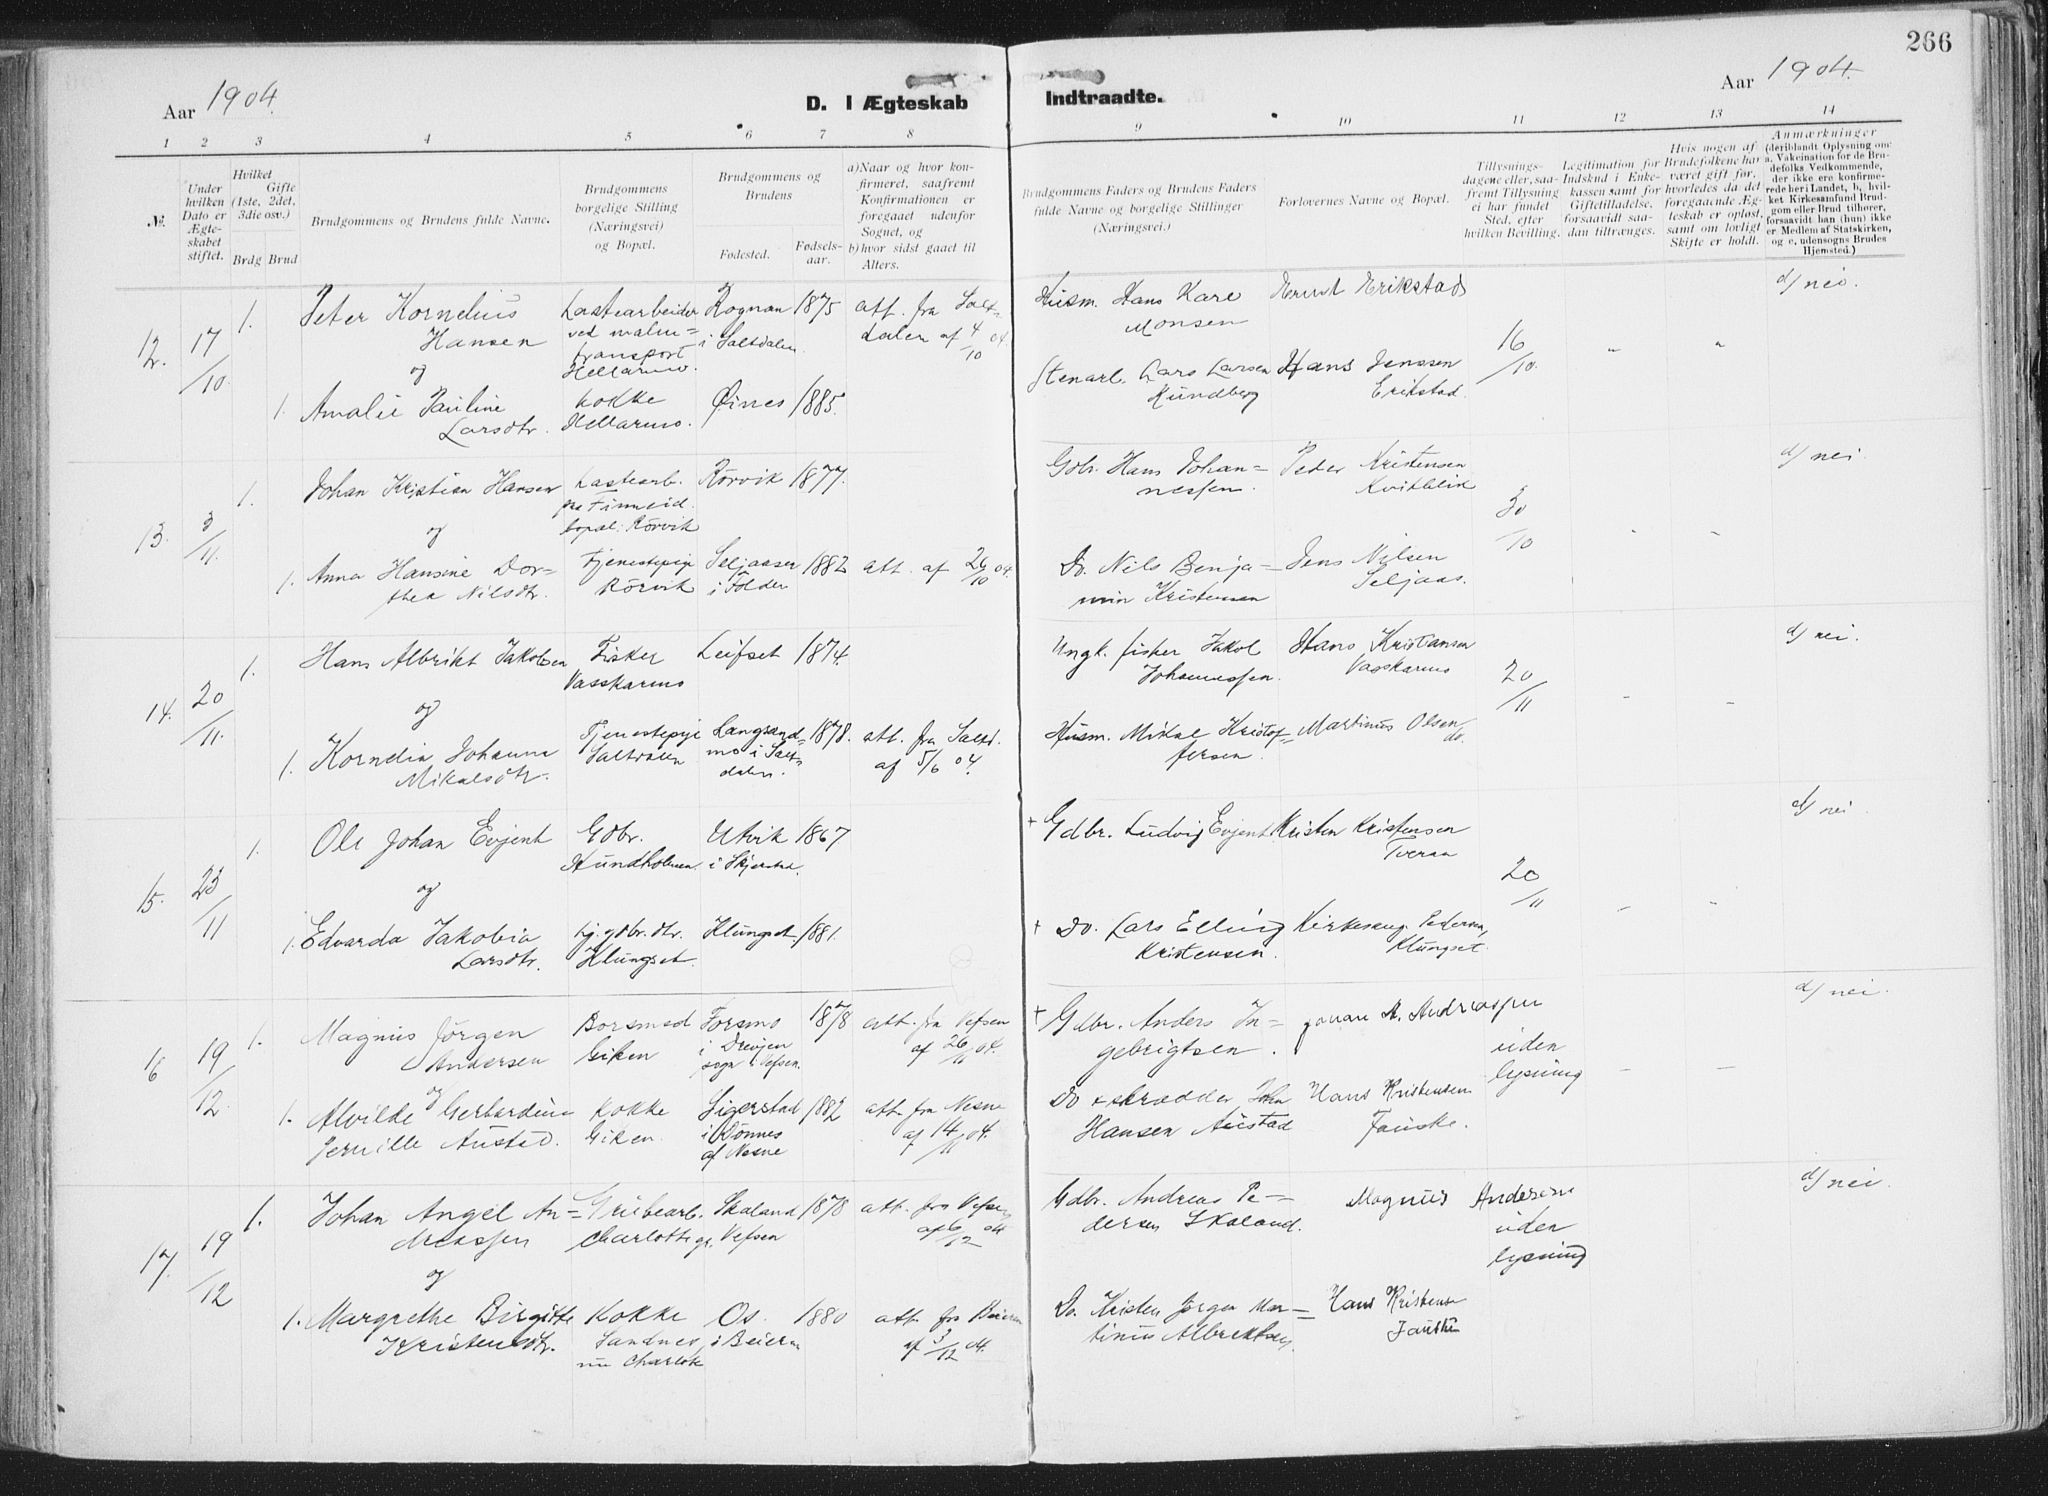 266
Aar 1904.
D. I Ægteskab Indtraadte.
Aar 1904.
1 2 3 4 5 6 7 8 9 10 11 12 13 14
№.
Under hvilken Dato er Ægteskabet stiftet.
Hvilket Gifte (1ste, 2det, 3die osv.)
Brdg Brud
Brudgommens og Brudens fulde Navne.
Brudgommens borgelige Stilling (Næringsvei) og Bopæl.
Brudgommens og Brudens
Fødested.
Fødselsaar.
a) Naar og hvor konfirmeret, saafremt Konfirmationen er foregaaet udenfor Sognet, og
b) hvor sidst gaaet til Alters.
Brudgommens Faders og Brudens Faders fulde Navne og borgelige Stillinger (Næringsvei.)
Forlovernes Navne og Bopæl.
Tillysningsdagene eller, saafremt Tillysning ei har fundet Sted, efter hvilken Bevilling.
Legitimation for Indskud i Enkekassen samt for Giftetilladelse, forsaavidt saadan tiltrænges.
Hvis nogen af Brudefolkene har været gift før, hvorledes da det foregaaende Ægteskab er opløst, samt om lovligt Skifte er holdt.
Anmærkninger (deriblandt Oplysning om: a. Vakcination for de Brudefolks Vedkommende, der ikke ere konfirmerede her i Landet, b, hvilket Kirkesamfund Brudgom eller Brud tilhører, forsaavidt han (hun) ikke er Medlem af Statskirken, og c, udensogns Brudes Hjemsted.)
12. 17/10. 1. Peter Kornelius Hansen
Lastearbeider ved malmtransport Hellarmo.
Rognan i Saltdalen 1875
att. fra Saltdalen af 4/10 04.
Husm. Hans Kare Monsen
Ernst Erikstad
16/10.
d/ nei.
og
1. Amalie Pauline Larsdtr.
kokke Hellarmo.
Øines 1885.
Stenarb. Lars Larsen Hundberg
Hans Jenssen Erikstad.
13. 3/11. 1. Johan Kristian Hansen
Lastearb. fra Finneid. bopæl: Rörvik
Rörvik 1877.
Gdbr. Hans Johannessen.
Peder Kristensen Kvitblik
30/10
d/ nei
og
1. Anna Hansine Dorthea Nilsdtr.
Tjenestepige Rörvik
Seljaaser i Folden 1882
att. af 26/10 04.
Do. Nils Benjamin Kristensen
Jens Nilsen Seljaas.
14. 20/11. 1. Hans Albrikt Jakobsen
Fisker Vasskarmo
Leifset 1874.
Ungk. fisker Jakob Johannessen.
Hans Kristiansen Vasskarmo
20/11
d/ nei.
og
1. Kornelia Johanna Mikalsdtr.
Tjenestepige Saltdalen
Langsandmo i Saltdalen. 1878.
att. fra Saltd. af 5/6 04.
Husm. Mikal Kristoffersen.
Martinus Olsen do.
15. 23/11 1. Ole Johan Evjent
Gdbr. Hundholmen
Utvik i Skjerstad. 1867
+ Gdbr. Ludvig Evjent
Kristen Kristensen Tveraa
20/11
d/ nei
og
1. Edvarda Jakobia Larsdtr.
hj. gdbr. dtr. Klungset.
Klungset. 1881.
+ Do. Lars Elling Kristensen.
Kirkesang. Pedersen, Klungset.
16 19/12. 1. Magnus Jörgen Andersen
Borsmed Giken
Forsmo i Drevjen sogn i Vefsen. 1878
att. fra Vefsen af 26/11 04.
+ Gdbr. Anders Ingebrigtsen.
Johan A. Andreassen
uden lysning
d/ nei.
og
1. Alvilde Gerhardine Pernille Austad.
kokke Giken.
Sigerstad i Dönnes af Nesne 1882
att. fra Nesne af 14/11 04.
Do + skrædder John Hansen Austad
Hans Kristensen Fauske.
17. 19/12 1. Johan Angel Andreassen
Grubearb. Charlotte gr.
Skaland Vefsen 1878
att. fra Vefsen af 6/12 04
Gdbr. Andreas Pedersen Skaland.
Magnus Andersen
uden lysning
d/ nei.
og
1. Margrethe Birgitte Kristensdtr.
Kokke Sandnes, nu Charlotte
Os. i Beiern 1880
att. fra Beiern af 3/12 04.
Do. Kristen Jörgen Martinus Albrektsen.
Hans Kristensen Fauske